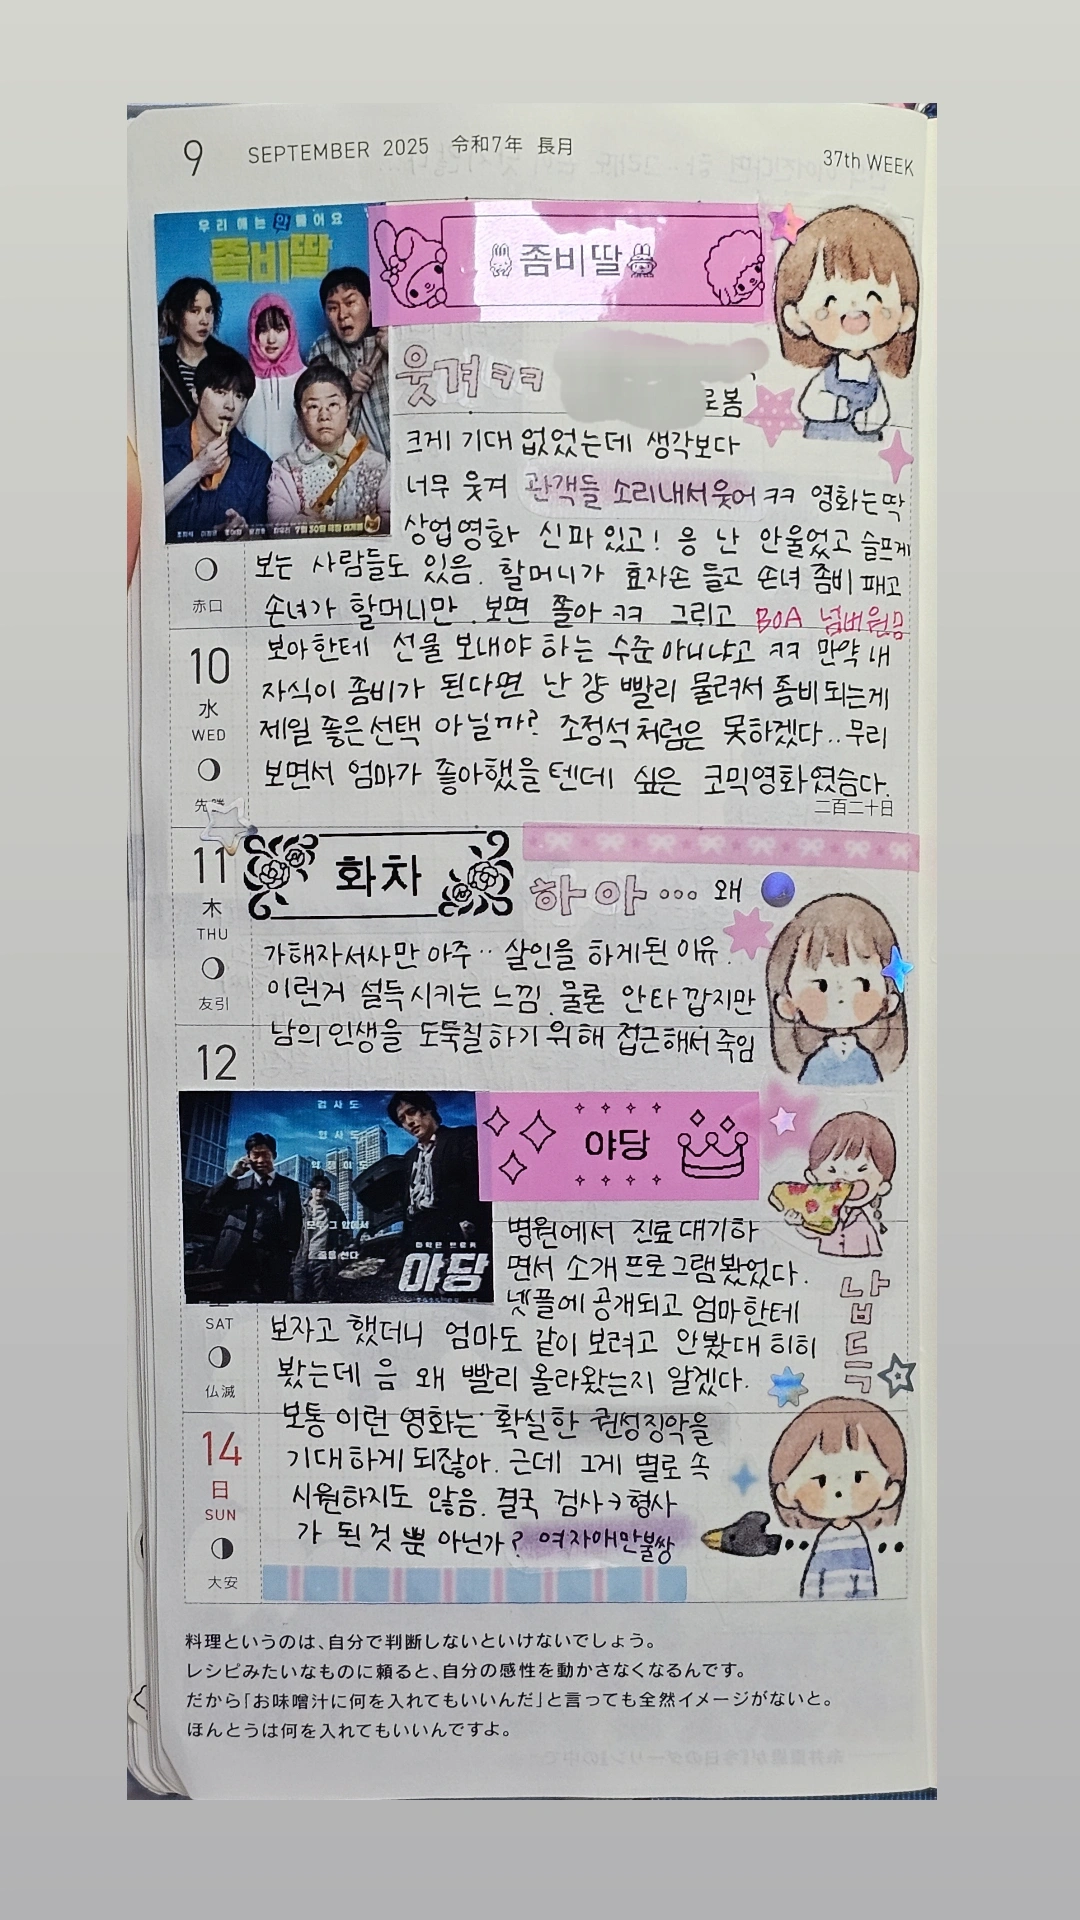 9 SEPTEMBER 2025 令和7年 長月
37th WEEK
우리 애는 안 물어요
좀비딸
7월 30일 극장 대개봉
좀비딸
웃겨 ㅋㅋ
로봄
크게 기대 없었는데 생각보다
너무 웃겨 관객들 소리내서 웃어 ㅋㅋ 영화는 딱
상업영화 신파 있고! 응 난 안울었고 슬프게
보는 사람들도 있음. 할머니가 효자손 들고 손녀 좀비 패고
손녀가 할머니만 보면 쫄아 ㅋㅋ 그리고 BOA 넘버원믕
보아한테 선물 보내야 하는 수준 아니냐고 ㅋㅋ 만약 내
자식이 좀비가 된다면 난 걍 빨리 물려서 좀비 되는게
제일 좋은 선택 아닐까? 조정석처럼은 못하겠다.. 무리
보면서 엄마가 좋아했을텐데 싶은 코믹영화였슴다.
赤口
10
水
WED
先勝
二百二十日
11
木
THU
友引
화차
하아... 왜
가해자서사만 아주.. 살인을 하게된 이유.
이런거 설득시키는 느낌. 물론 안타깝지만
남의 인생을 도둑질하기 위해 접근해서 죽임
12
검사도
형사도
마약쟁이도
모두 그 앞에서
줄을 선다
야당
야당
병원에서 진료 대기하
면서 소개 프로그램 봤었다.
넷플에 공개되고 엄마한테
보자고 했더니 엄마도 같이 보려고 안봤대 히히
봤는데 음 왜 빨리 올라왔는지 알겠다.
보통 이런 영화는 확실한 권성징악을
기대하게 되잖아. 근데 그게 별로 속
시원하지도 않음. 결국 검사→형사
가 된 것 뿐 아닌가? 여자애만불쌍
납득
SAT
仏滅
14
日
SUN
大安
料理というのは、自分で判断しないといけないでしょう。
レシピみたいなものに頼ると、自分の感性を動かさなくなるんです。
だから「お味噌汁に何を入れてもいいんだ」と言っても全然イメージがないと。
ほんとうは何を入れてもいいんですよ。